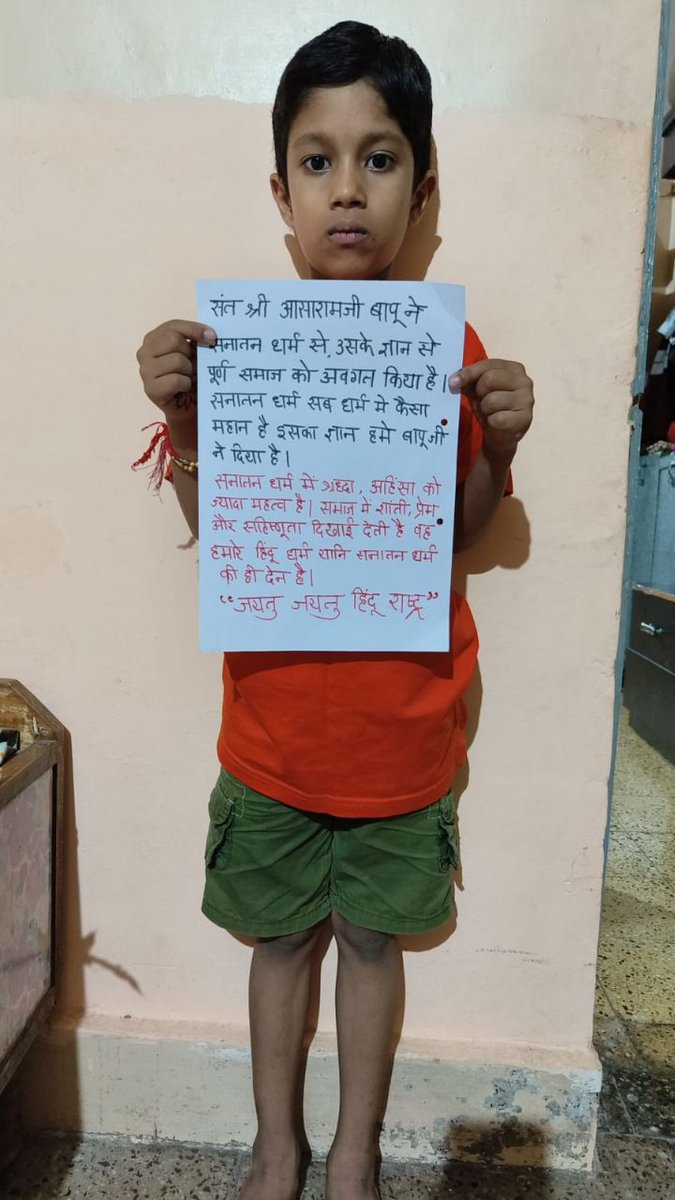 संत श्री आसारामजी बापू ने
सनातन धर्म से, उसके ज्ञान से
पूर्ण समाज को अवगत किया है।
सनातन धर्म सब धर्म मे कैसा
महान है इसका ज्ञान हमे बापूजी
ने दिया है।
सनातन धर्म में श्रध्दा, अहिंसा को
ज्यादा महत्व है। समाज मे शांती, प्रेम
और सहिष्णूता दिखाई देती है वह
हमारे हिंदू धर्म यानि सनातन धर्म
की ही देन है।
"जयतु जयतु हिंदू राष्ट्र"